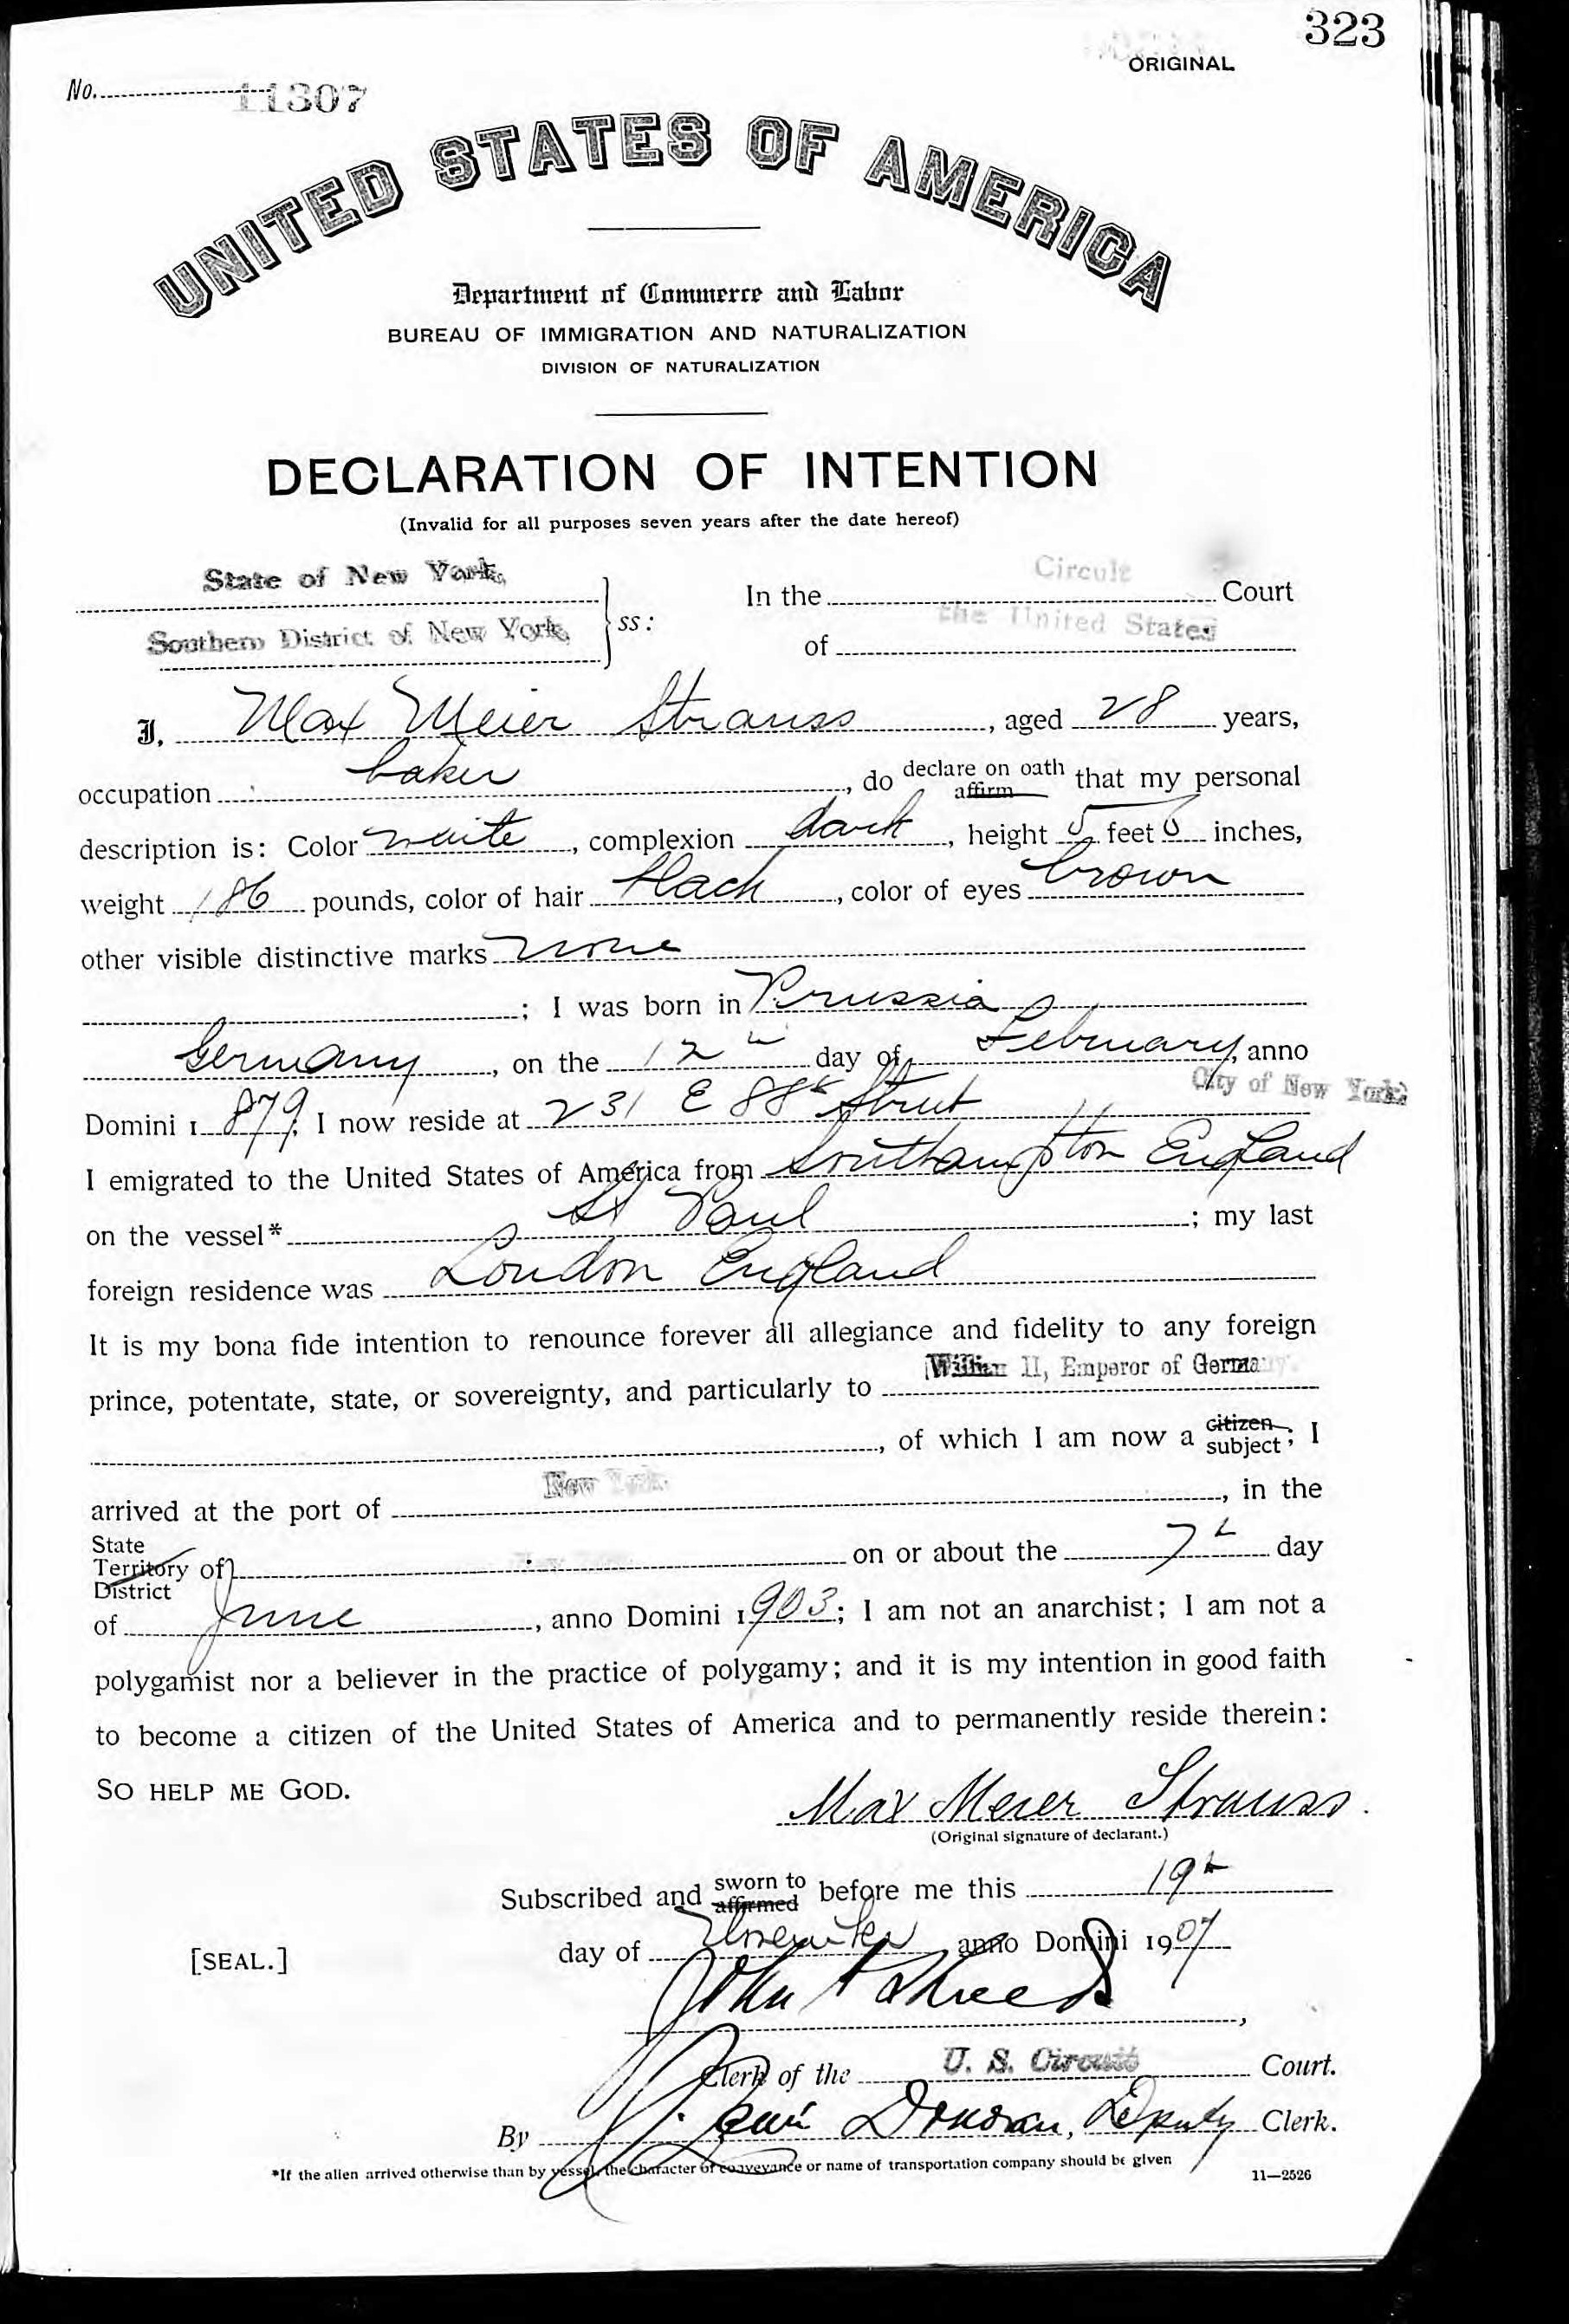 323
ORIGINAL
No. 11307
UNITED STATES OF AMERICA
Department of Commerce and Labor
BUREAU OF IMMIGRATION AND NATURALIZATION
DIVISION OF NATURALIZATION
DECLARATION OF INTENTION
(Invalid for all purposes seven years after the date hereof)
State of New York, In the Circuit Court
Southern District of New York, ss: of the United States
I, Max Meier Strauss, aged 28 years,
occupation baker, do declare on oath affirm that my personal
description is: Color white, complexion dark, height 5 feet 6 inches,
weight 186 pounds, color of hair black, color of eyes brown
other visible distinctive marks none
; I was born in Prussia
Germany, on the 12th day of February, anno
Domini 1879, I now reside at 231 E 88th Street City of New York
I emigrated to the United States of America from Southampton England
on the vessel* St Paul; my last
foreign residence was London England
It is my bona fide intention to renounce forever all allegiance and fidelity to any foreign
prince, potentate, state, or sovereignty, and particularly to William II, Emperor of Germany
, of which I am now a citizen subject; I
arrived at the port of New York, in the
State Territory District of New York on or about the 7th day
of June, anno Domini 1903; I am not an anarchist; I am not a
polygamist nor a believer in the practice of polygamy; and it is my intention in good faith
to become a citizen of the United States of America and to permanently reside therein:
SO HELP ME GOD.
Max Meier Strauss.
(Original signature of declarant.)
Subscribed and sworn to affirmed before me this 19th
[SEAL.] day of November anno Domini 1907
John A Shields,
Clerk of the U. S. Circuit Court.
By Donovan, Deputy Clerk.
*If the alien arrived otherwise than by vessel, the character of conveyance or name of transportation company should be given
11—2526